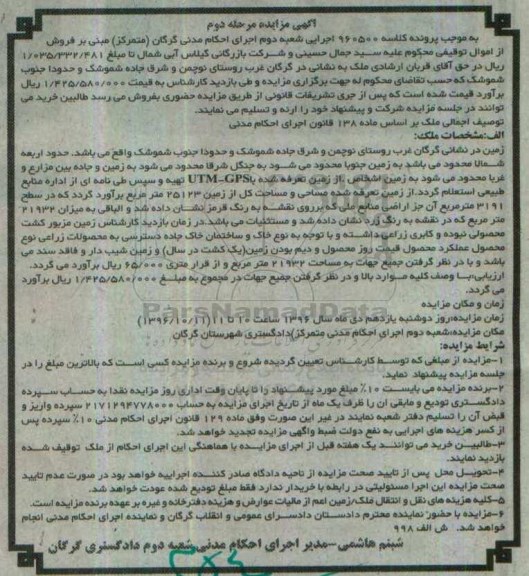 آگهی مزایده مرحله دوم
به موجب پرونده کلاسه ۹۶۰۵۰۰ اجرایی شعبه دوم اجرای احکام مدنی گرگان (متمرکز) مبنی بر فروش
از اموال توقیفی محکوم علیه سید جمال حسینی و شرکت بازرگانی گیلاس آبی شمال تا مبلغ ۱/۰۳۵/۳۳۲/۴۸۱
ریال در حق آقای قربان ارشادی ملک به نشانی در گرگان غرب روستای توچمن و شرق جاده شموشک و حدودا جنوب
شموشک که حسب تقاضای محکوم له جهت برگزاری مزایده و طی بازدید کارشناس به قیمت ۱/۴۲۵/۵۸۰/۰۰۰ ریال
برآورد قیمت شده است که پس از جری تشریفات قانونی از طریق مزایده حضوری بفروش می رسد طالبین خرید می
توانند در جلسه مزایده شرکت و پیشنهاد خود را ارئه و تسلیم می نمایند.
توصیف اجمالی ملک بر اساس ماده ۱۳۸ قانون اجرای احکام مدنی
الف:مشخصات ملک:
زمین در نشانی گرگان غرب روستای توچمن و شرق جاده شموشک و حدودا جنوب شموشک واقع می باشد. حدود اربعه
شمالا محدود می باشد به زمین جنوبا محدود می شود به جنگل شرقا محدود می شود به زمین و جاده بین مزارع و
غربا محدود می شود به زمین اشخاص .از زمین تعرفه شده با UTM-GPS تهیه و سپس طی نامه ای از اداره منابع
طبیعی استعلام گردد.از زمین تعرفه شده مساحی و مساحت کل از زمین ۲۵۱۲۳ متر مربع برآورد گردد که در سطح
۳۱۹۱ مترمربع آن جز اراضی منابع ملی که برروی نقشه به رنگ قرمز نشان داده شد و الباقی به میزان ۲۱۹۳۲
متر مربع که در نقشه به رنگ زرد نشان داده شد و مستثنیات می باشد.در زمان بازدید کارشناس زمین مزبور کشت
محصولی نبوده و کابری زراعی داشته و با توجه به نوع خاک و ساختمان خاک جاده دسترسی به محصولات زراعی نوع
محصول عملکرد محصول قیمت روز محصول و دیم بودن زمین(یک کشت در سال) و زمین شیب دار و فاقد سند می
باشد و با در نظر گرفتن جمیع جهات به مساحت ۲۱۹۳۲ متر مربع و از قرار متری ۶۵/۰۰۰ ریال برآورد می گردد.
ارزیابی:با وصف کلیه موارد بالا و در نظر گرفتن جمیع جهات در مجموع به مبلغ ۱/۴۲۵/۵۸۰/۰۰۰ ریال برآورد
می گردد.
زمان و مکان مزایده
زمان مزایده:روز دوشنبه یازدهم دی ماه سال ۱۳۹۶ ساعت ۱۰ تا ۱۱(۱۳۹۶/۱۰/۱۱)
مکان مزایده:شعبه دوم اجرای احکام مدنی متمرکز)دادگستری شهرستان گرگان
شرایط مزایده:
۱-مزایده از مبلغی که توسط کارشناس تعیین گردیده شروع و برنده مزایده کسی است که بالاترین مبلغ را در
جلسه مزایده پیشنهاد نماید.
۲-برنده مزایده می بایست ۱۰٪ مبلغ مورد پیشنهاد را تا پایان وقت اداری روز مزایده نقدا به حساب سپرده
دادگستری تودیع و مابقی ان را ظرف یک ماه از تاریخ اجرای مزایده به حساب ۲۱۷۱۲۹۴۷۷۸۰۰۰ سپرده واریز و
قبض آن را تسلیم دفتر شعبه نمایند در غیر این صورت وفق ماده ۱۲۹ قانون اجرای احکام مدنی ۱۰٪ سپرده پس
از کسر هزینه های اجرایی به نفع دولت ضبط واگهی مزایده تجدید خواهد شد.
۳-طالبین خرید می توانند یک هفته قبل از اجرای مزایده با هماهنگی این اجرای احکام از ملک توقیف شده
بازدید نمایند.
۴-تحویل محل پس از تایید صحت مزایده از ناحیه دادگاه صادر کننده اجراییه خواهد بود در صورت عدم تایید
صحت مزایده این اجرا مسئولیتی در رابطه با خریدار ندارد فقط مبلغ تودیع شده عودت خواهد شد.
۵-کلیه هزینه های نقل و انتقال ملک/زمین اعم از مالیات عوارض و هزینه دفترخانه و غیره بر عهده برنده مزایده است.
۶-مزایده با حضور نماینده محترم دادستان دادسرای عمومی و انقلاب گرگان و نماینده اجرای احکام مدنی انجام
خواهد شد. ش الف ۹۹۸
شبنم هاشمی-مدیر اجرای احکام مدنی شعبه دوم دادگستری گرگان